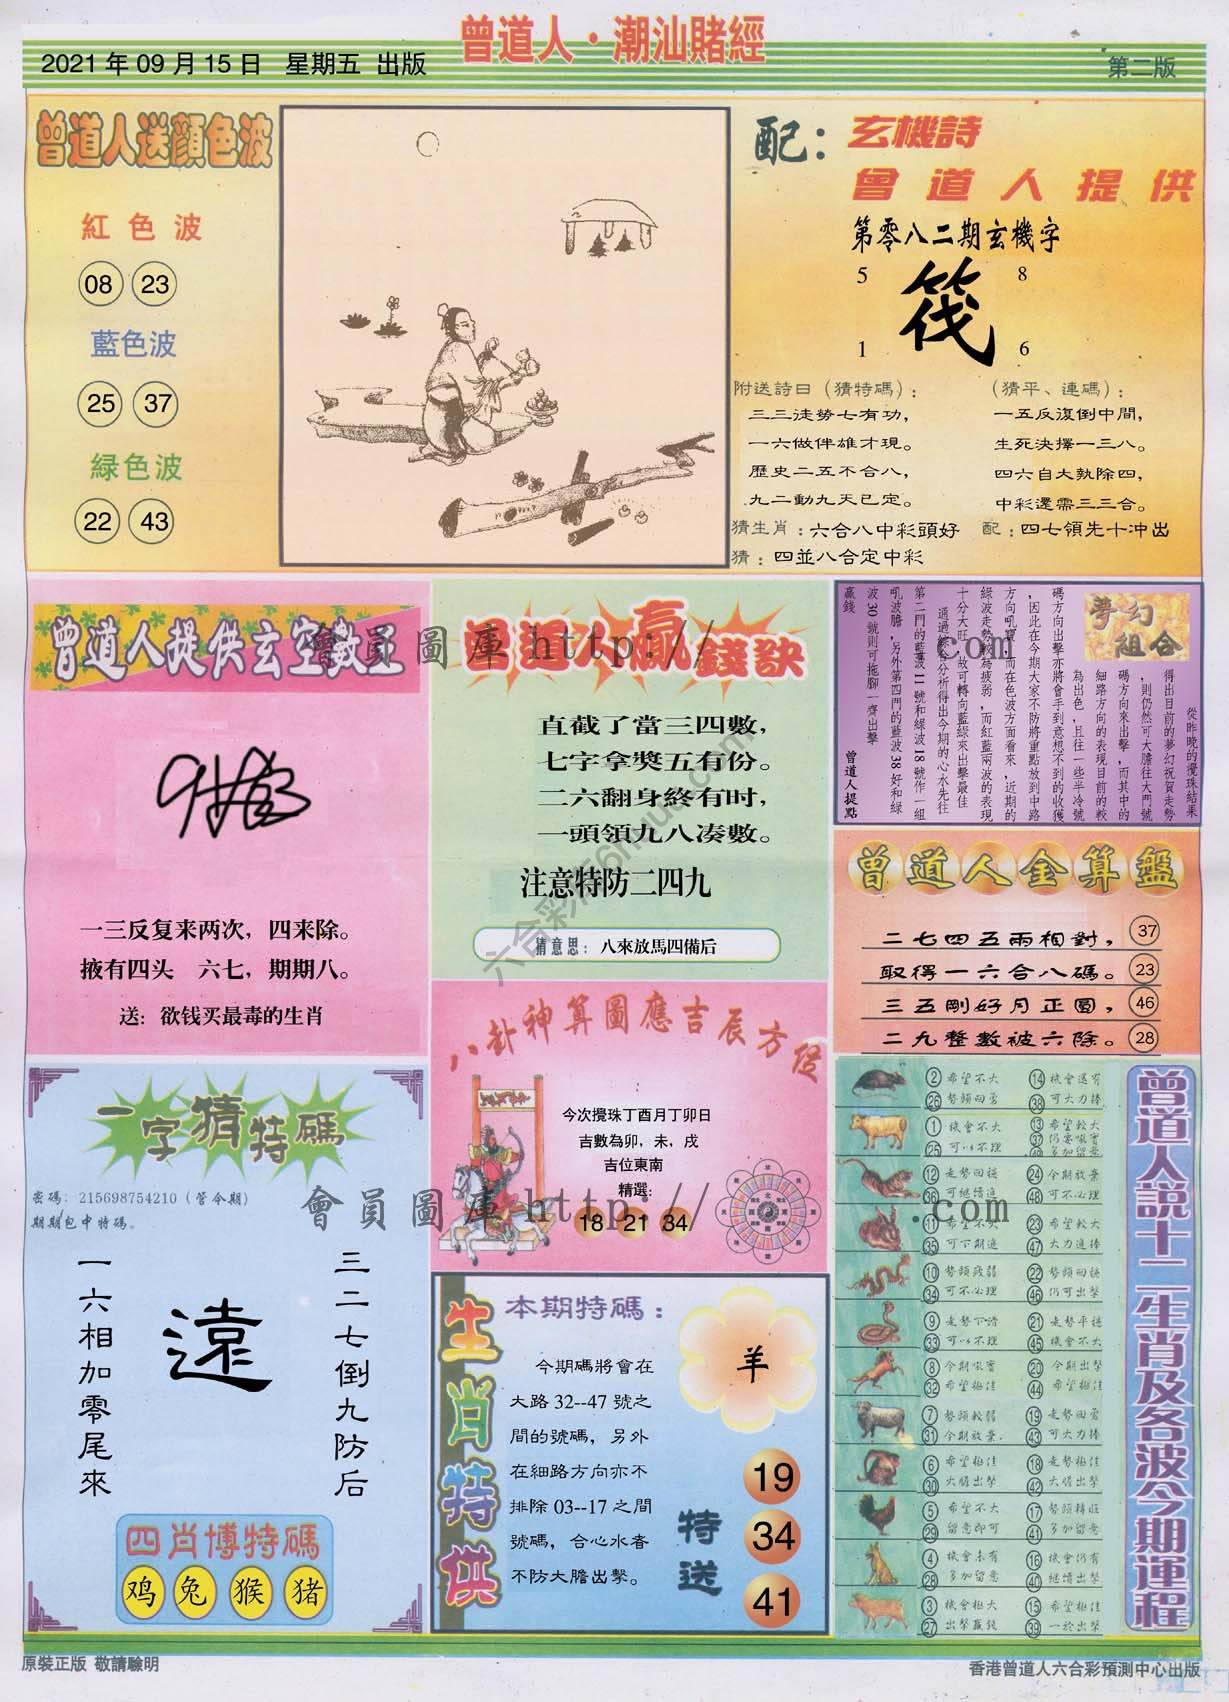 曾道人·潮汕賭經
2021年09月15日 星期五 出版
第二版
曾道人送顏色波
紅色波
08 23
藍色波
25 37
綠色波
22 43
配：玄機詩
曾道人提供
第零八二期玄機字
5 8
筏
1 6
附送詩曰（猜特碼）：
三三徒勞七有功，
一六做伴雄才現。
歷史二五不合八，
九二動九天已定。
猜生肖：六合八中彩頭好
猜：四並八合定中彩
（猜平、連碼）：
一五反復倒中間，
生死決擇一三八。
四六自大執除四，
中彩還需三三合。
配：四七領先十冲出
曾道人提供玄空數王
一三反复来两次，四来除。
掖有四头 六七，期期八。
送：欲钱买最毒的生肖
曾道人贏錢訣
直截了當三四數，
七字拿獎五有份。
二六翻身終有时，
一頭領九八凑數。
注意特防二四九
猜意思：八來放馬四備后
夢幻組合
從昨晚的攪珠結果
得出目前的夢幻祝賀走勢
，則仍然可大膽往大門號
碼方向來出擊，而其中的
細路方向的表現目前的較
為出色，且往一些半冷號
碼方向出擊亦將會手到意想不到的收獲
，因此在今期大家不防將重點放到中路
方向吼實，而在色波方面看來，近期的
綠波走勢較為疲弱，而紅藍兩波的表現
十分大旺，故可轉向藍綠來出擊最佳
通過綜合分析得出今期的心水先往
第二門的藍波11號和綠波18號作一組
吼波膽，另外第四門的藍波38好和綠
波30號則可拖腳一齊出擊
贏錢
曾道人提點
曾道人金算盤
二七四五兩相對， 37
取得一六合八碼。 23
三五剛好月正圓， 46
二九整數被六除。 28
八卦神算圖應吉辰方位
今次攪珠丁酉月丁卯日
吉數為卯，未，戌
吉位東南
精選：
18 21 34
一字猜特碼
密碼：215698754210（管今期）
期期包中特碼。
三二七倒九防后
遠
一六相加零尾來
四肖博特碼
鸡 兔 猴 猪
生肖特供
本期特碼：
今期碼將會在
大路32--47號之
間的號碼，另外
在細路方向亦不
排除03--17之間
號碼，合心水者
不防大膽出擊。
羊
特送
19
34
41
曾道人說十二生肖及各波今期運程
2 希望不大 14 機會還有
26 勢頭回勇 38 可大力捧
1 機會不大 13 希望較大
25 可以不理 37 仍要吼實
49 多加留意
12 走勢回穩 24 今期放棄
36 可繼續追 48 可不必理
11 希望不大 23 希望較大
35 可下期追 47 大力追捧
10 勢頭疲弱 22 勢頭回穩
34 可不必理 46 仍可出擊
9 走勢下滑 21 走勢平穩
33 可以不理 45 機會不大
8 今期吼實 20 今期出擊
32 希望極佳 44 希望極佳
7 勢頭較弱 19 走勢回勇
31 今期放棄 43 可大力捧
6 希望極佳 18 走勢極佳
30 大膽出擊 42 大膽出擊
5 希望不大 17 勢頭轉旺
29 留意即可 41 多加留意
4 機會未有 16 機會仍有
28 多加留意 40 繼續出擊
3 機會極大 15 希望極佳
27 出擊贏錢 39 一於出擊
會員圖庫 http:// .com
會員圖庫 http:// .com
原裝正版 敬請驗明
香港曾道人六合彩預測中心出版